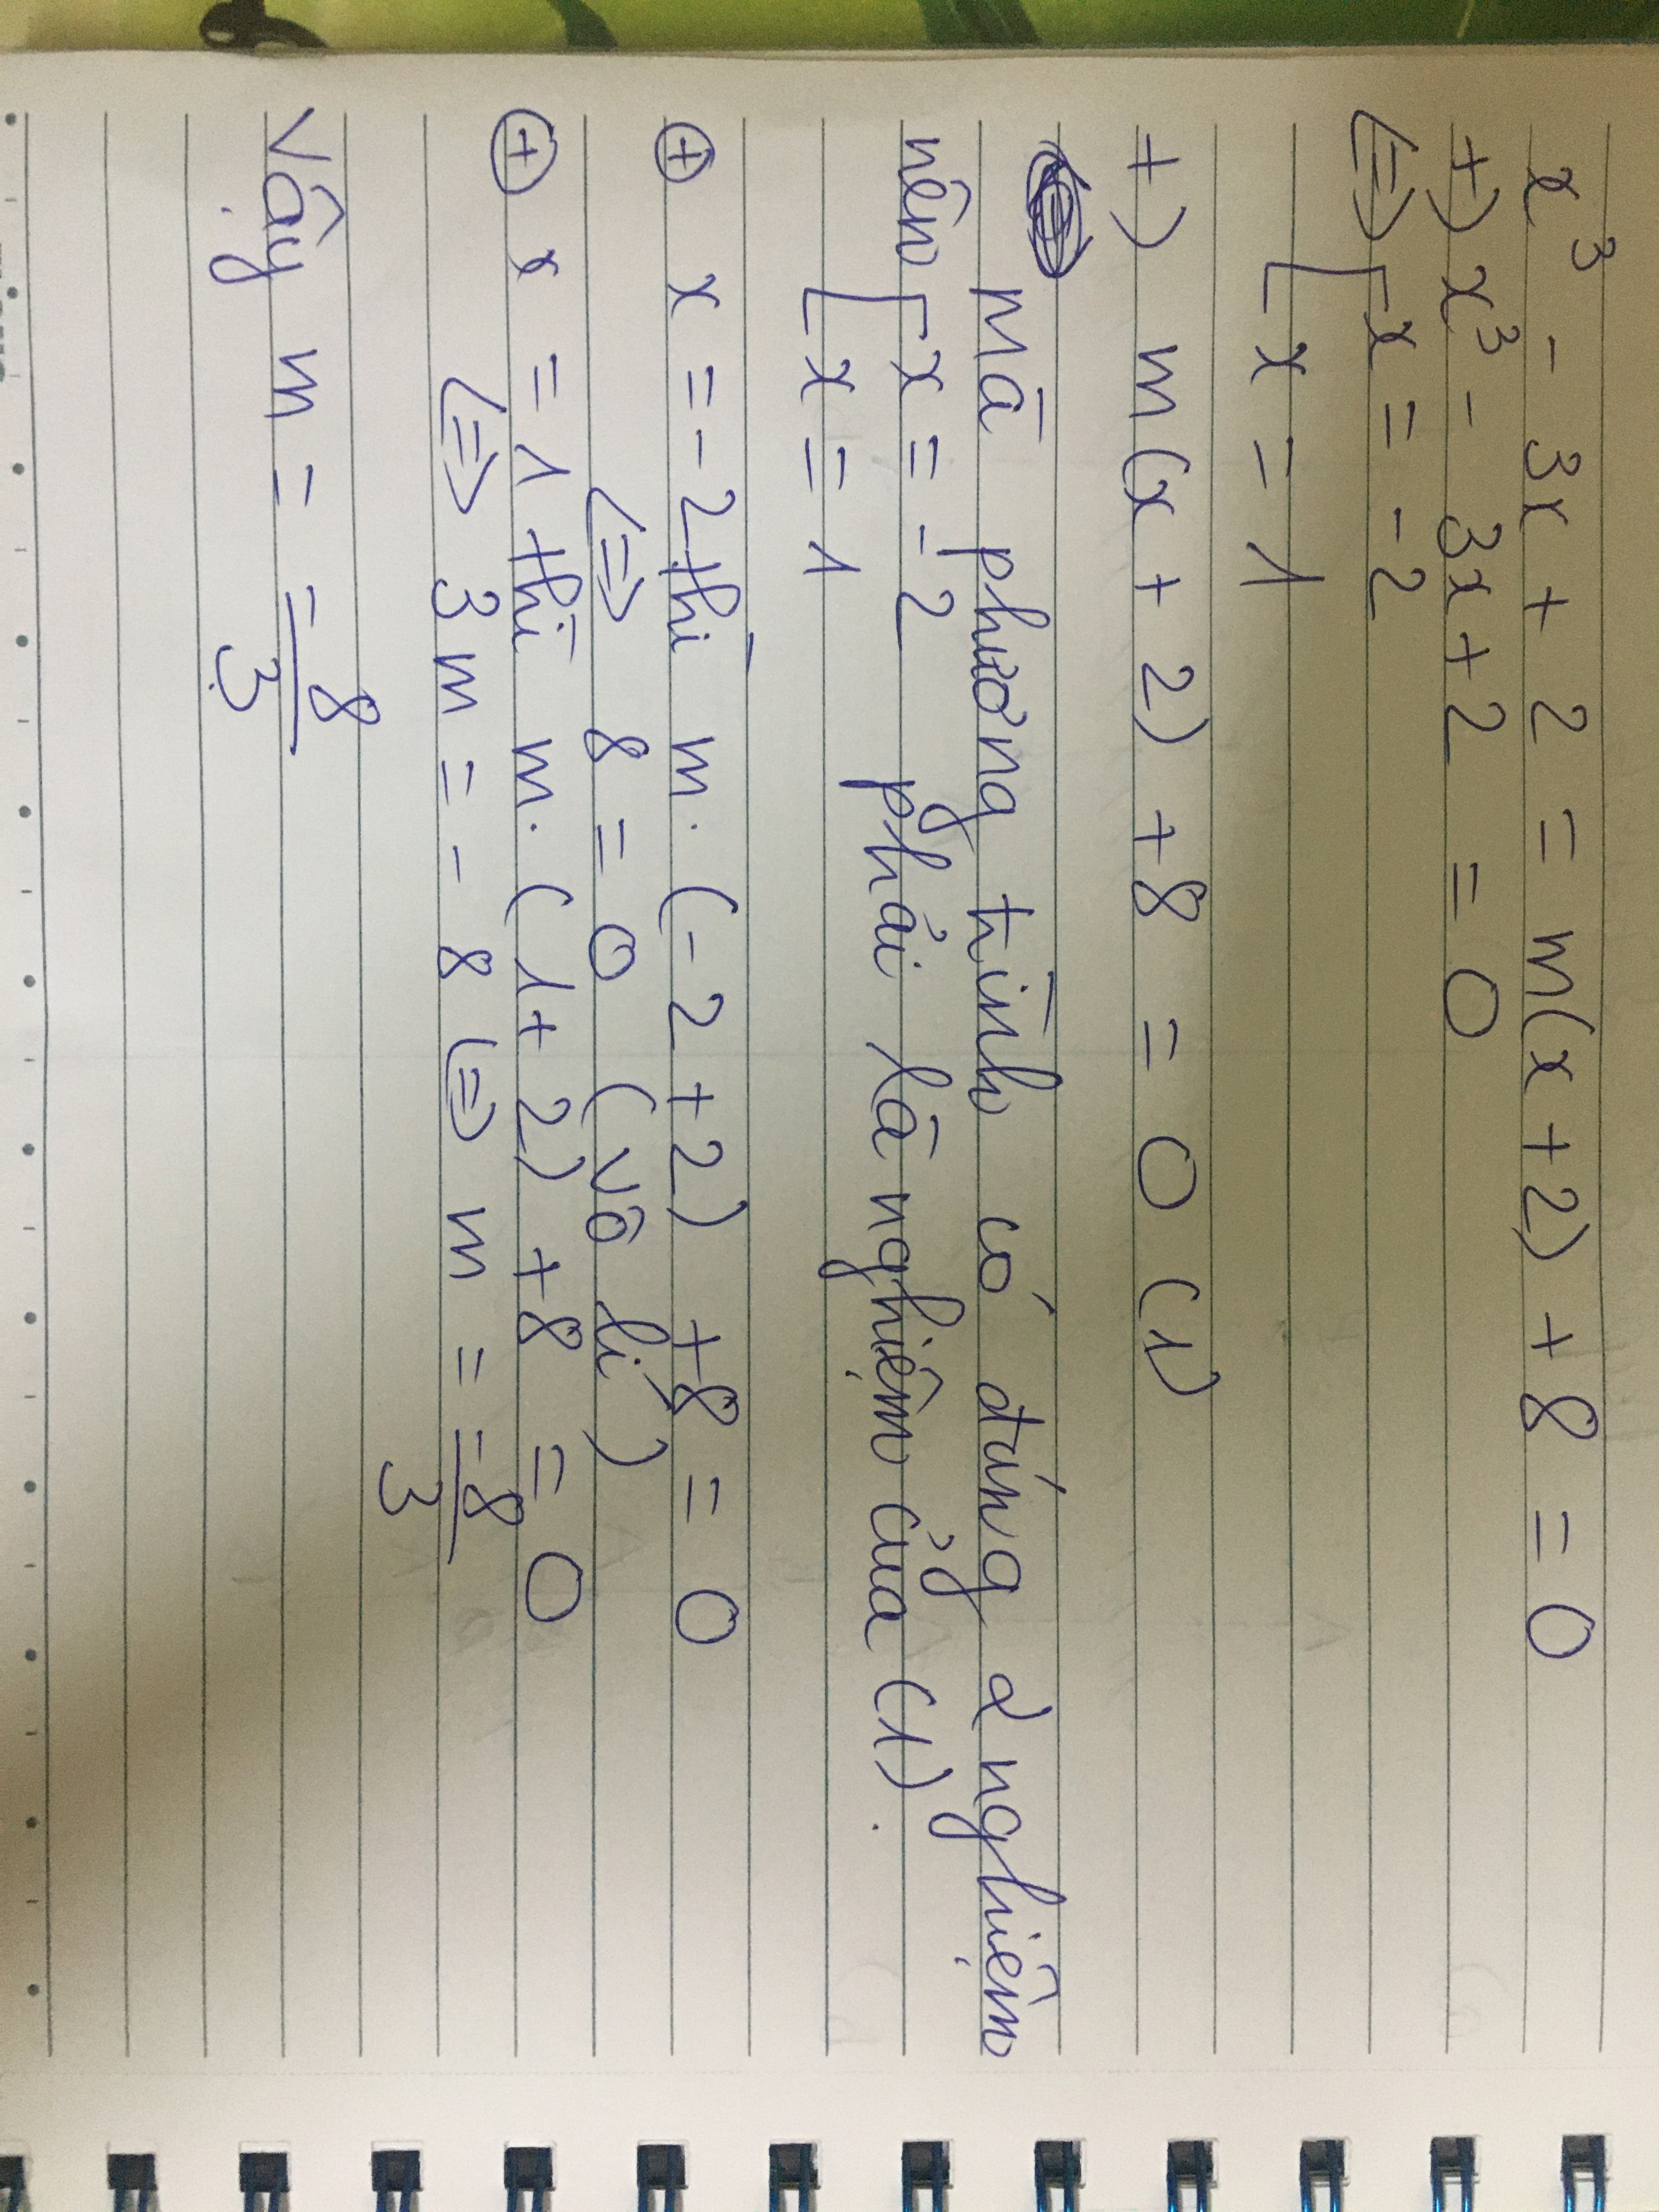 x³ - 3x + 2 = m(x + 2) + 8 = 0
+) x³ - 3x + 2 = 0
<=> [ x = -2
[ x = 1
+) m(x + 2) + 8 = 0 (1)
Mà phương trình có đúng 2 nghiệm
nên [ x = -2 phải là nghiệm của (1).
[ x = 1
⊕ x = -2 thì m. (-2 + 2) + 8 = 0
<=> 8 = 0 (vô lí)
⊕ x = 1 thì m. (1 + 2) + 8 = 0
<=> 3m = -8 <=> m = -8/3
Vậy m = -8/3